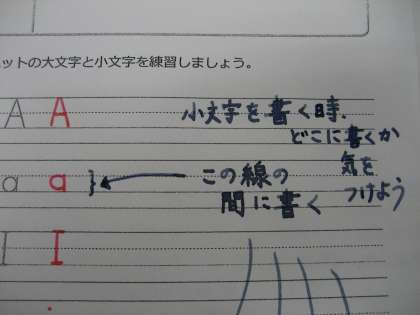 ットの大文字と小文字を練習しましょう。
A A
小文字を書く時、
どこに書くか
気を
つけよう
a a
この線の
間に書く
I I